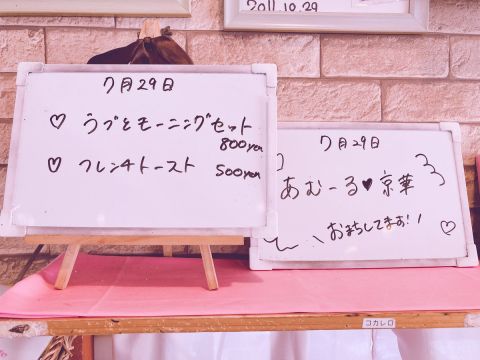 2011.10.29
7月29日
♡ うづとモーニングセット
800yen
♡ フレンチトースト 500yen
7月29日
あむーる♥京華
おまちしてます!!
♡
コカレロ